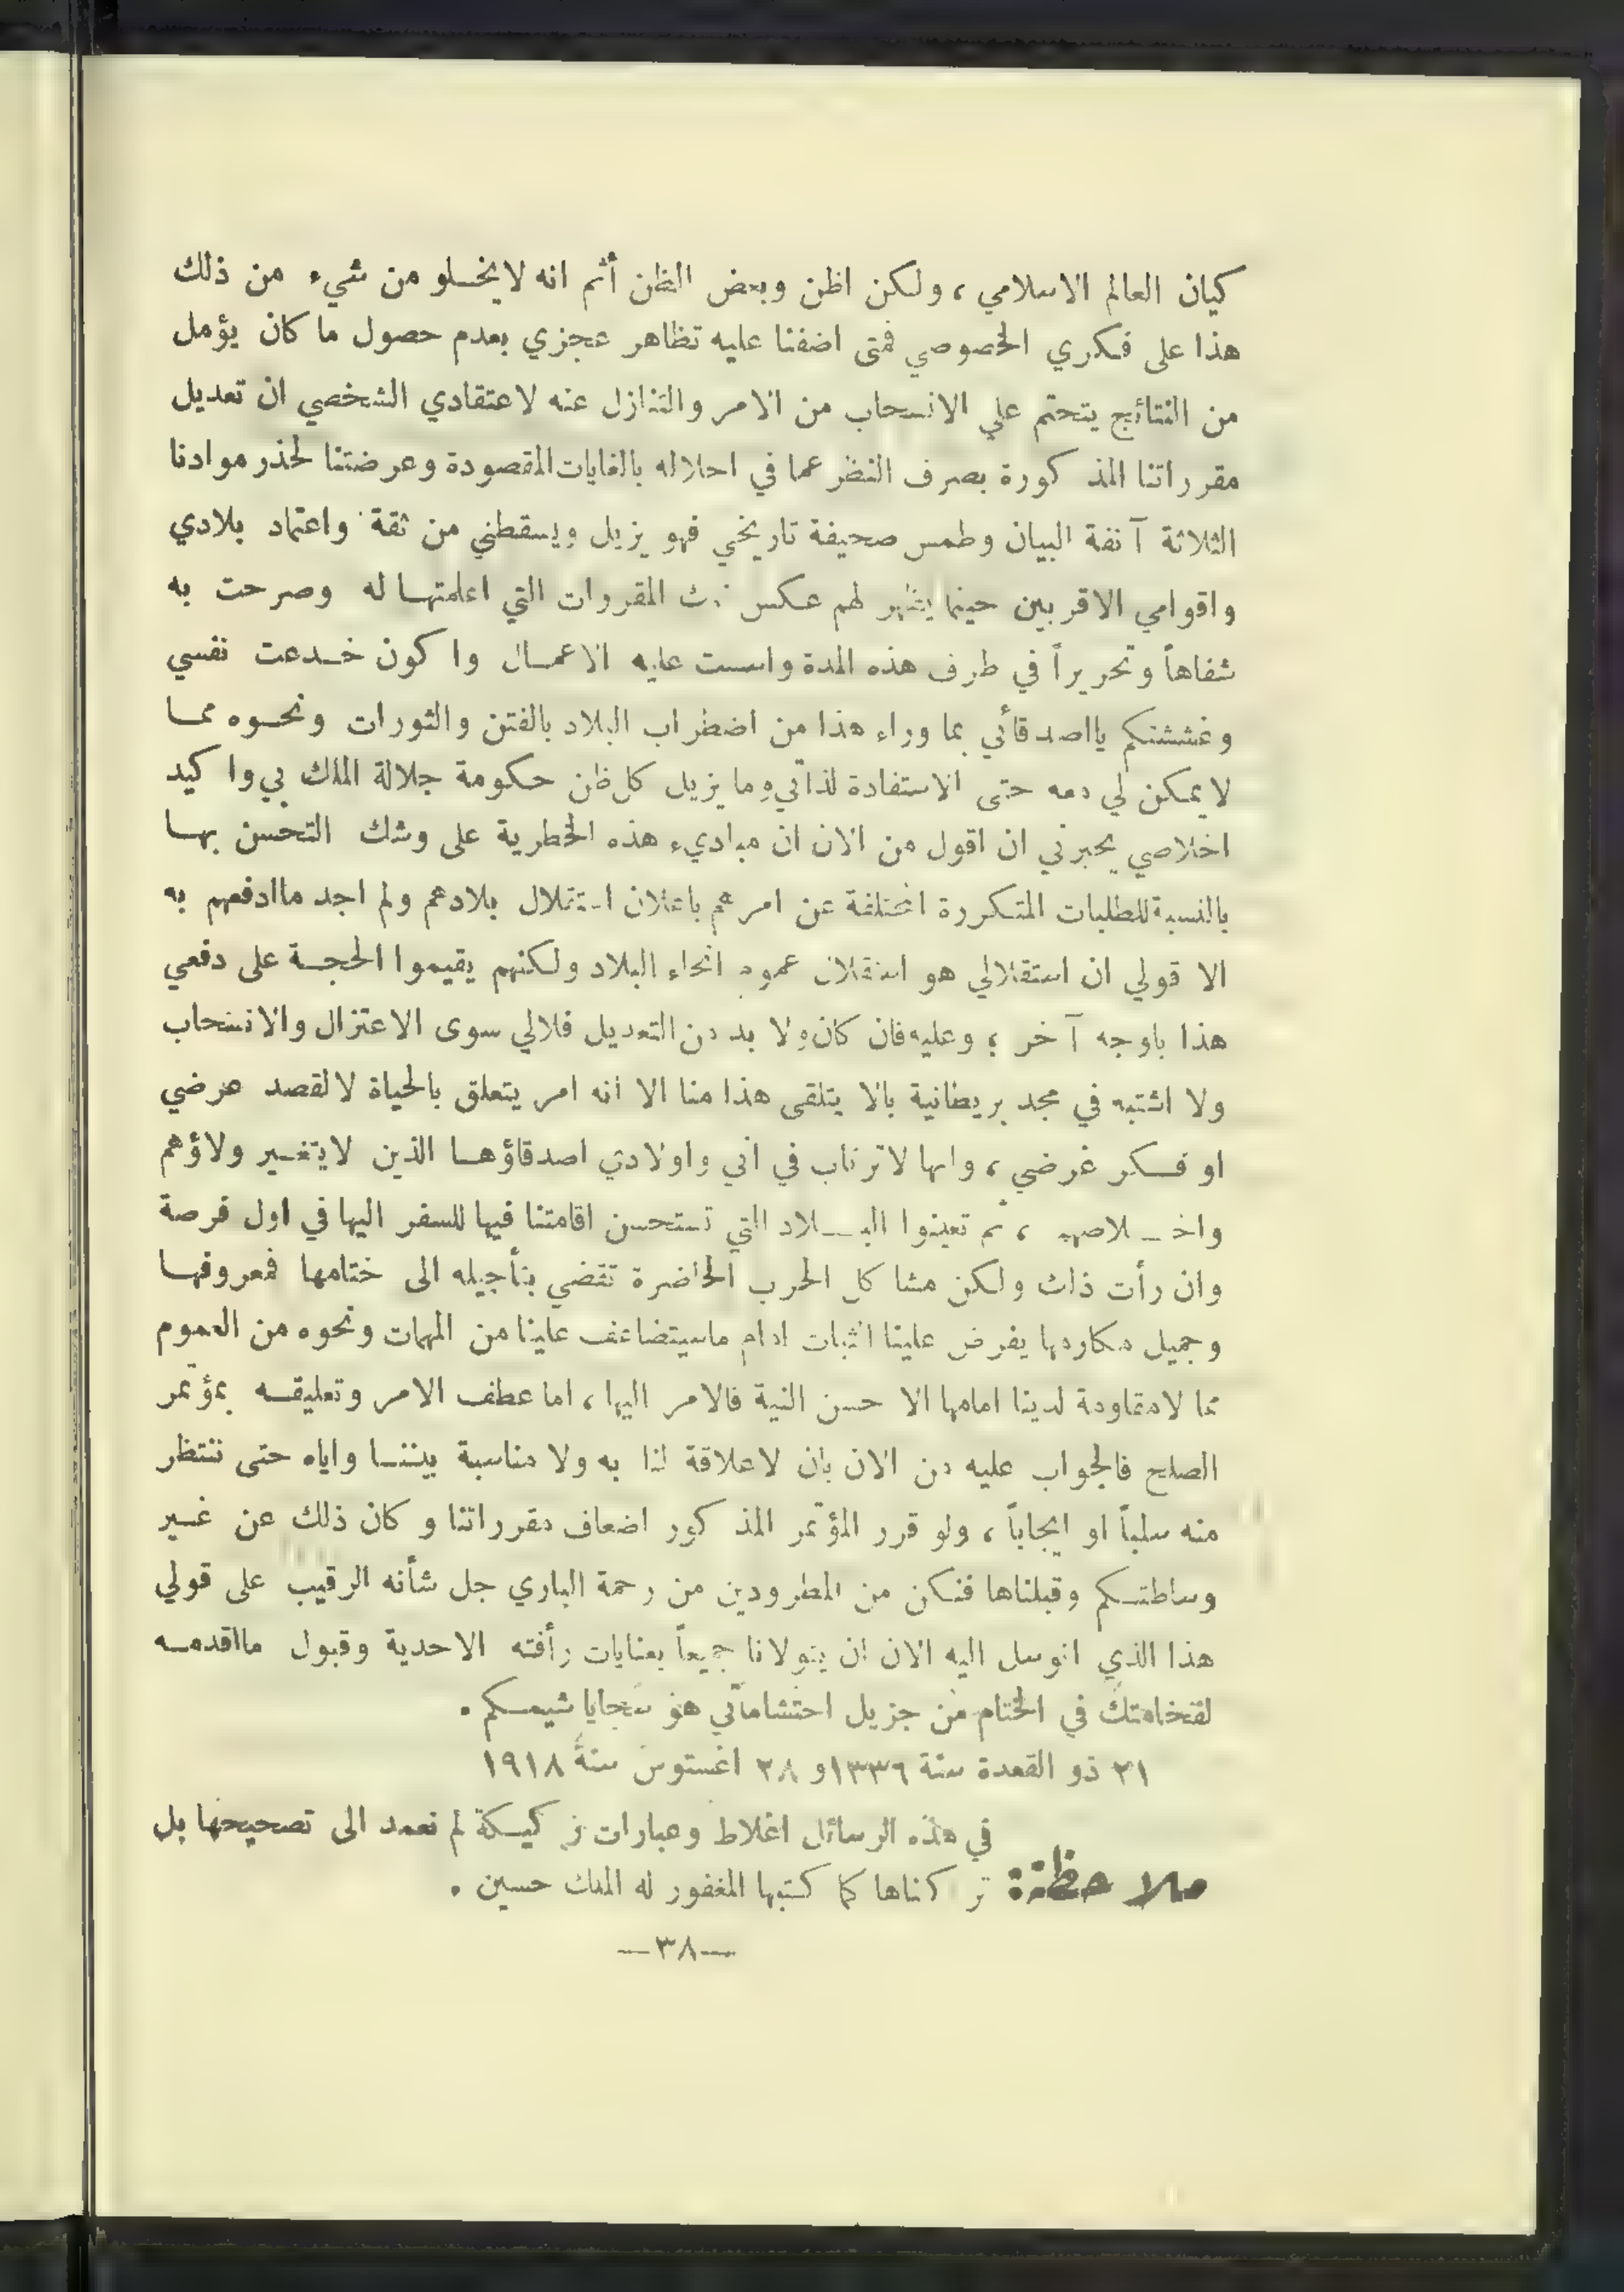 كيان العالم الاسلامي ، ولكن اظن وبعض الظن أثم انه لا يخلو من شيء من ذلك
هذا على فكري الخصوصي فمتى اضفنا عليه تظاهر عجزي بعدم حصول ما كان يؤمل
من النتائج يتحتم علي الانسحاب من الامر والتنازل عنه لاعتقادي الشخصي ان تعديل
مقرراتنا المذكورة بصرف النظر عما في احلاله بالغايات المقصودة وعرضتنا لحذر موادنا
الثلاثة آنفة البيان وطمس صحيفة تاريخي فهو يزيل ويسقطني من ثقة واعتماد بلادي
واقوامي الاقربين حينما يظهر لهم عكس المقررات التي اعلمتها له وصرحت به
شفاهاً وتحريراً في طرف هذه المدة واسست عليه الاعمال واكون خدعت نفسي
وغششتكم يااصدقائي بما وراء هذا من اضطراب البلاد بالفتن والثورات ونحوه مما
لا يمكن لي معه حتى الاستفادة لذاتي وما يزيل كل ظن حكومة جلالة الملك بي واكيد
اخلاصي يجبرني ان اقول من الان ان مباديء هذه الخطرية على وشك التحسن بها
بالنسبة للطلبات المتكررة المختلفة عن امرهم باعلان استقلال بلادهم ولم اجد ماادفعهم به
الا قولي ان استقلالي هو استقلال عموم انحاء البلاد ولكنهم يقيموا الحجة على دفعي
هذا باوجه آخر ؛ وعليه فان كان ولا بد من التعديل فلالي سوى الاعتزال والانسحاب
ولا اشتبه في مجد بريطانية بالا يتلقى هذا منا الا انه امر يتعلق بالحياة لا لقصد عرضي
او فكر غرضي ، وانها لا ترتاب في اني واولادي اصدقاؤها الذين لا يتغير ولاؤهم
واخلاصهم ، ثم تعينوا البلاد التي تستحسن اقامتنا فيها للسفر اليها في اول فرصة
وان رأت ذلك ولكن مشاكل الحرب الحاضرة تقضي بتأجيله الى ختامها فمعروفها
وجميل مكارمها يفرض علينا الثبات امام ماسيتضاعف علينا من المهمات ونحوه من العموم
مما لا مقاومة لدينا امامها الا حسن النية فالامر اليها ، اما عطف الامر وتعليقه بمؤتمر
الصلح فالجواب عليه من الان بان لا علاقة لنا به ولا مناسبة بيننا واياه حتى ننتظر
منه سلباً او ايجاباً ، ولو قرر المؤتمر المذكور اضعاف مقرراتنا وكان ذلك عن غير
وساطتكم وقبلناها فنكن من المطرودين من رحمة الباري جل شأنه الرقيب على قولي
هذا الذي اتوسل اليه الان ان يتولانا جميعاً بعنايات رأفته الاحدية وقبول مااقدمه
لفخامتك في الختام من جزيل احتشاماتي هو سجايا شيمكم .
٢١ ذو القعدة سنة ١٣٣٦ و ٢٨ اغستوس سنة ١٩١٨
في هذه الرسائل اغلاط وعبارات ركيكة لم نعمد الى تصحيحها بل
ملاحظة: تركناها كما كتبها المغفور له الملك حسين .
—٣٨—